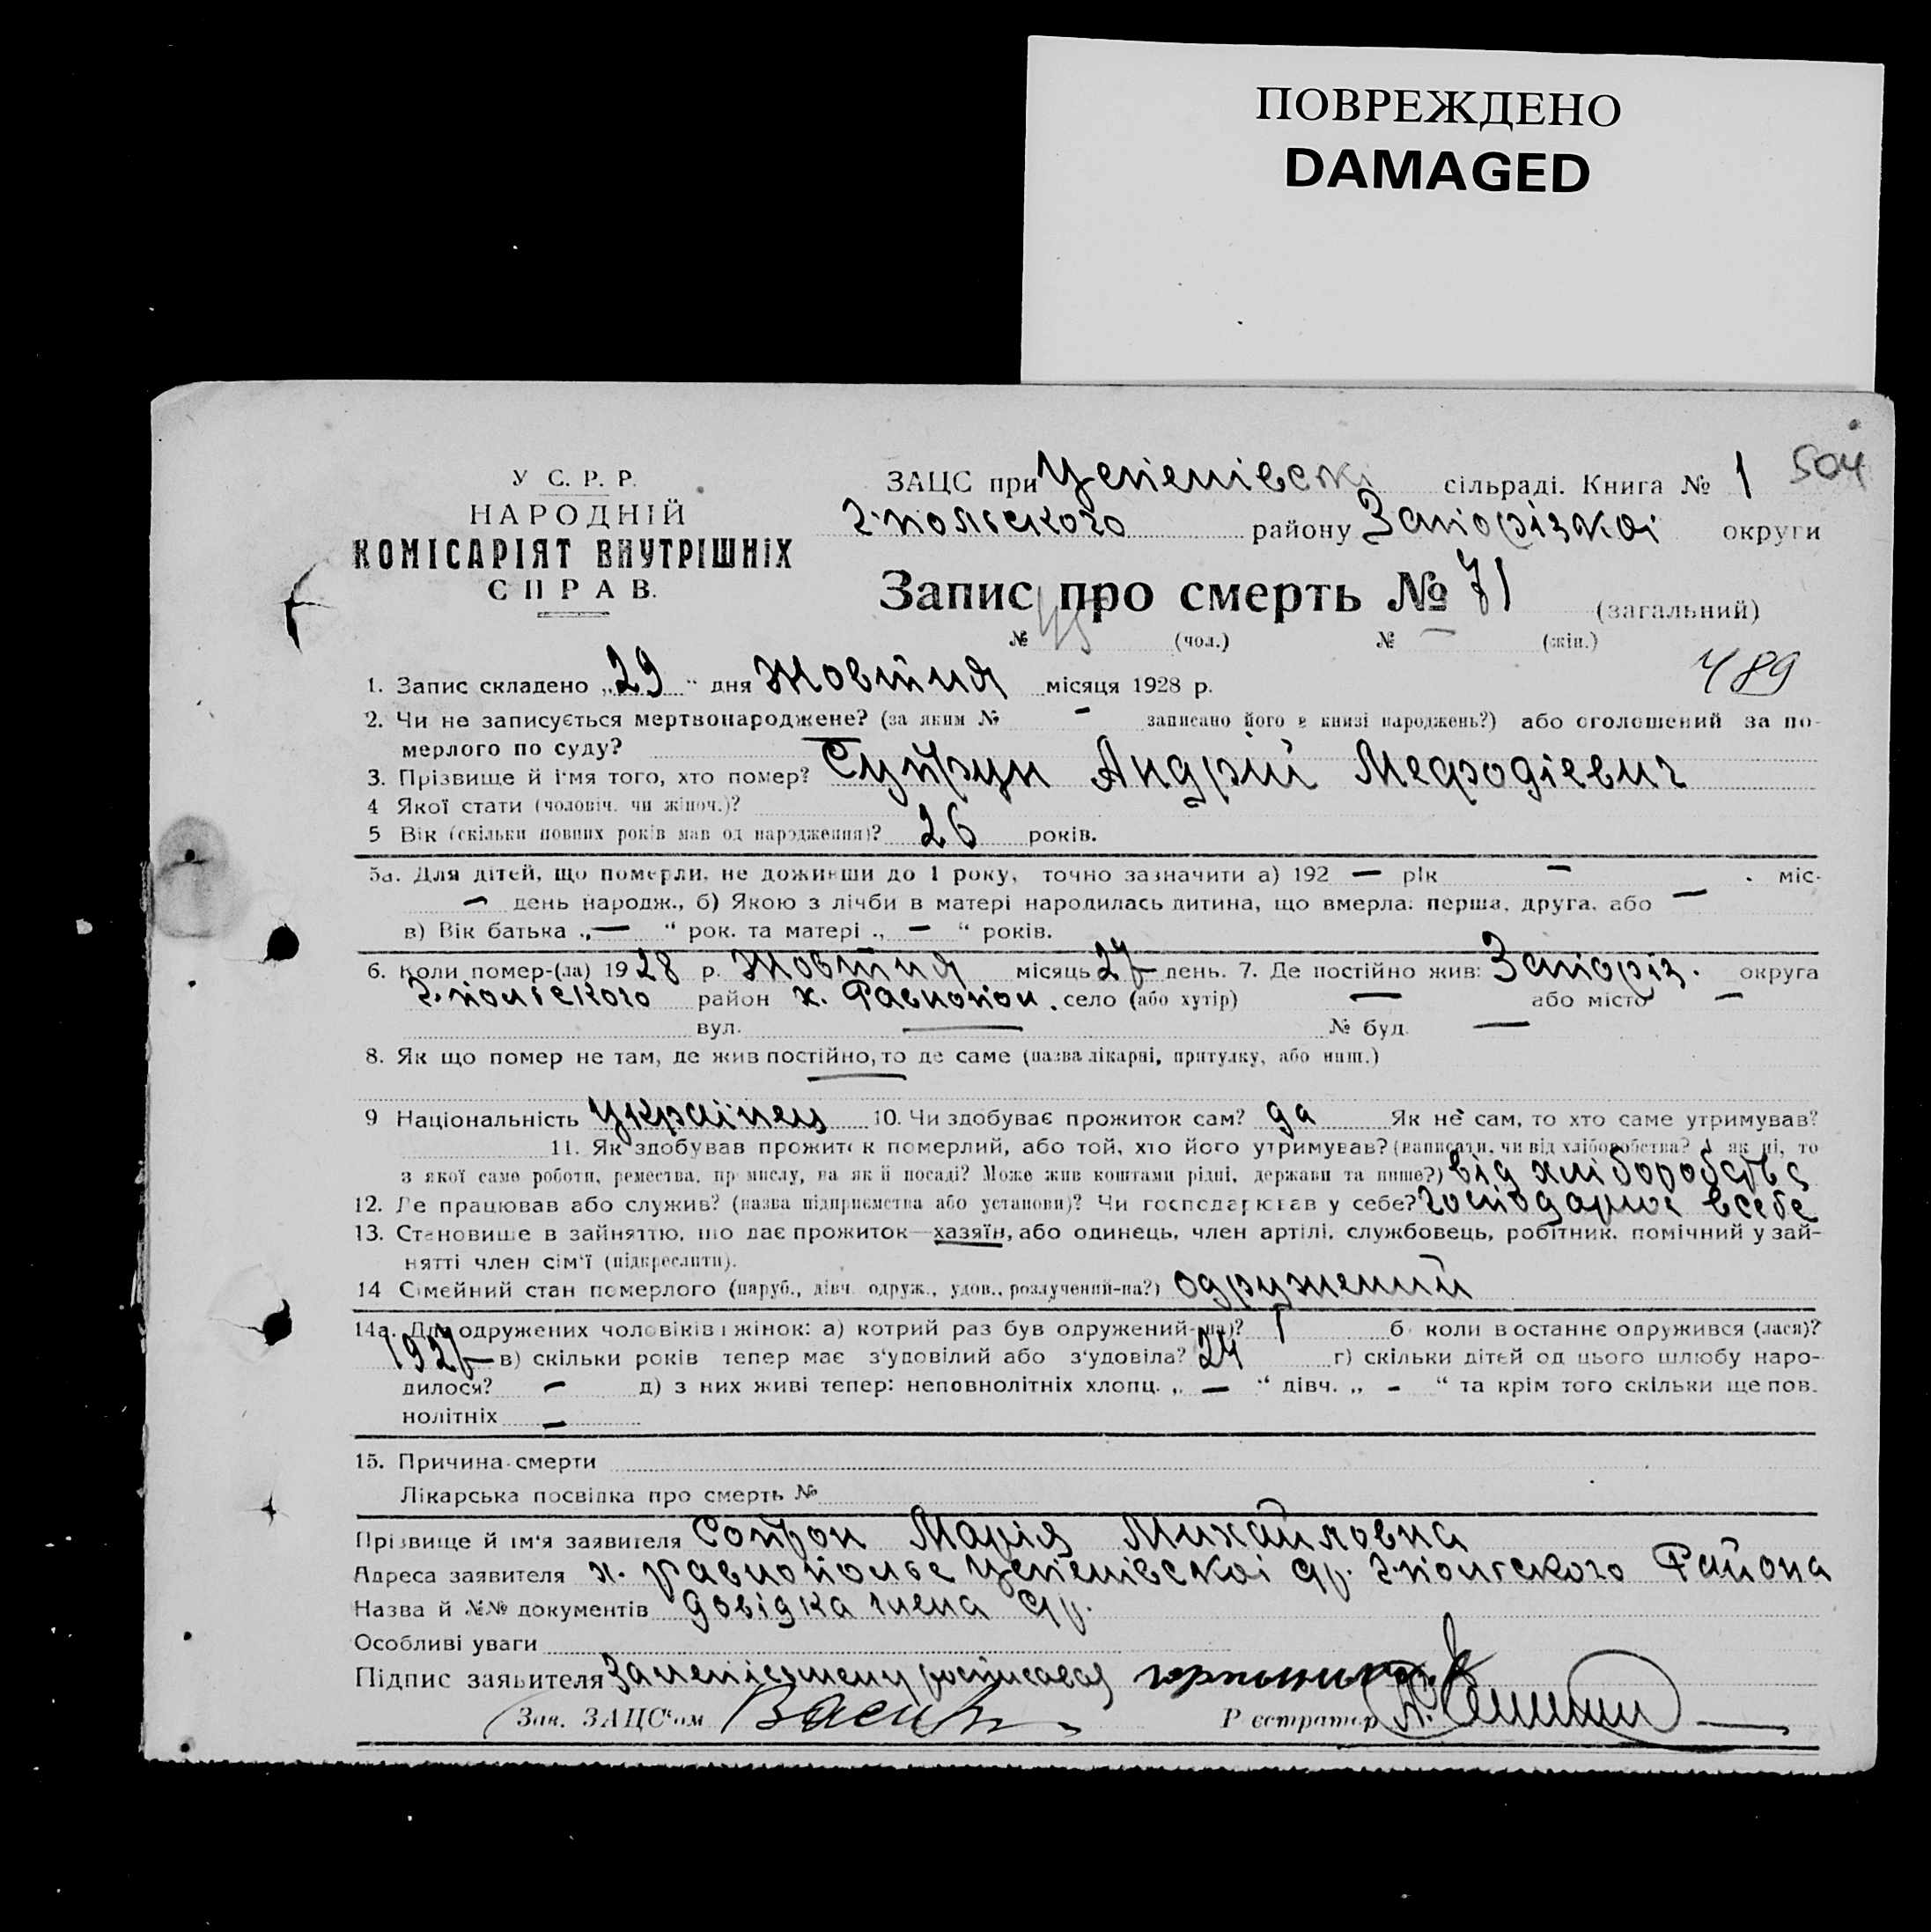 ПОВРЕЖДЕНО
DAMAGED
504
У С. Р. Р.
НАРОДНІЙ
КОМІСАРІЯТ ВНУТРІШНІХ
СПРАВ.
ЗАЦС при сільраді. Книга № 1
району Запорізкоі округи
Запис про смерть № 71 (загальний)
№ 45 (чол.) № — (жін.)
489
1. Запис складено „29“ дня Жовтня місяця 1928 р.
2. Чи не записується мертвонароджене? (за яким № - записано його в книзі народжень?) або оголошений за по-
мерлого по суду? —
3. Прізвище й ім'я того, хто помер? Супрун Андрій Мефодіевич
4 Якої стати (чоловіч. чи жіноч.)?
5 Вік (скільки повних років мав од народження)? 26 років.
5а. Для дітей, що померли, не доживши до 1 року, точно зазначити а) 192 — рік — міс-
— день народж., б) Якою з лічби в матері народилась дитина, що вмерла: перша, друга, або —
в) Вік батька „—“ рок. та матері „—“ років.
6. Коли помер-(ла) 1928 р. Жовтня місяць 27 день. 7. Де постійно жив: Запоріз. округа
район х. Равнопол. село (або хутір) — або місто —
вул. — № буд. —
8. Як що помер не там, де жив постійно, то де саме (назва лікарні, притулку, або инш.)
—
9 Національність українец 10. Чи здобуває прожиток сам? да Як не сам, то хто саме утримував?
11. Як здобував прожиток померлий, або той, хто його утримував? (написати, чи від хліборобства? А як ні, то
з якої саме роботи, ремества, промислу, на якій посаді? Може жив коштами рідні, держави та инше?) від хліборобства
12. Де працював або служив? (назва підприємства або установи)? Чи господарював у себе? господарює в себе
13. Становище в зайняттю, що дає прожиток—хазяїн, або одинець, член артілі, службовець, робітник, помічний у зай-
нятті член сім'ї (підкреслити).
14 Сімейний стан померлого (паруб., дівч. одруж., удов., розлучений-на?) одружений
14а. Для одружених чоловіків і жінок: а) котрий раз був одружений-(на)? 1 б) коли в останнє одружився (лася)?
1927 в) скільки років тепер має з'удовілий або з'удовіла? 24 г) скільки дітей од цього шлюбу наро-
дилося? — д) з них живі тепер: неповнолітніх хлопц. „—“ дівч. „-“ та крім того скільки ще пов.
нолітніх —
15. Причина смерти
Лікарська посвідка про смерть №
Прізвище й ім'я заявителя Сопрон Марія Михайловна
Адреса заявителя х. равнополье
Района
Назва й №№ документів довідка члена
Особливі уваги
Підпис заявителя
Зав. ЗАЦС'ом
Реєстратор